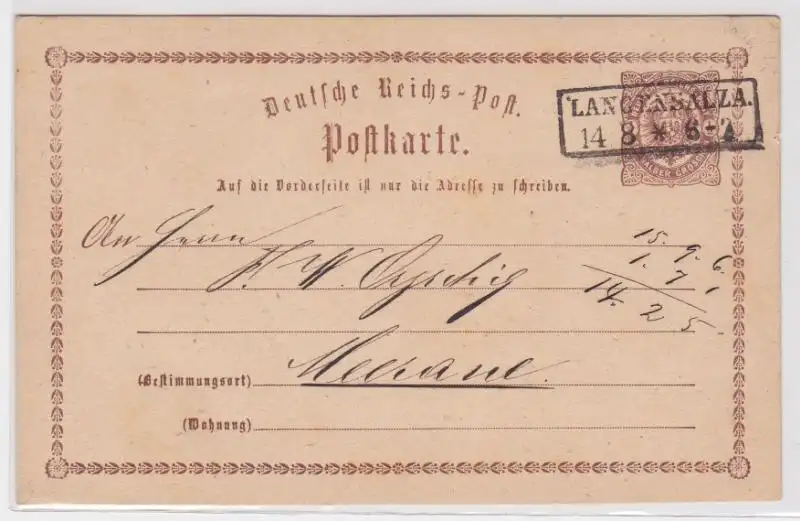 Deutsche Reichs-Post.
Postkarte.
LANGENSALZA.
14 8 * 6-7 A
HALBER GROSCHEN
Auf die Vorderseite ist nur die Adresse zu schreiben.
An Herrn
F. W.
15. 9. 6.
1. 7. 1
14. 2 5.
(Bestimmungsort) Meerane.
(Wohnung)